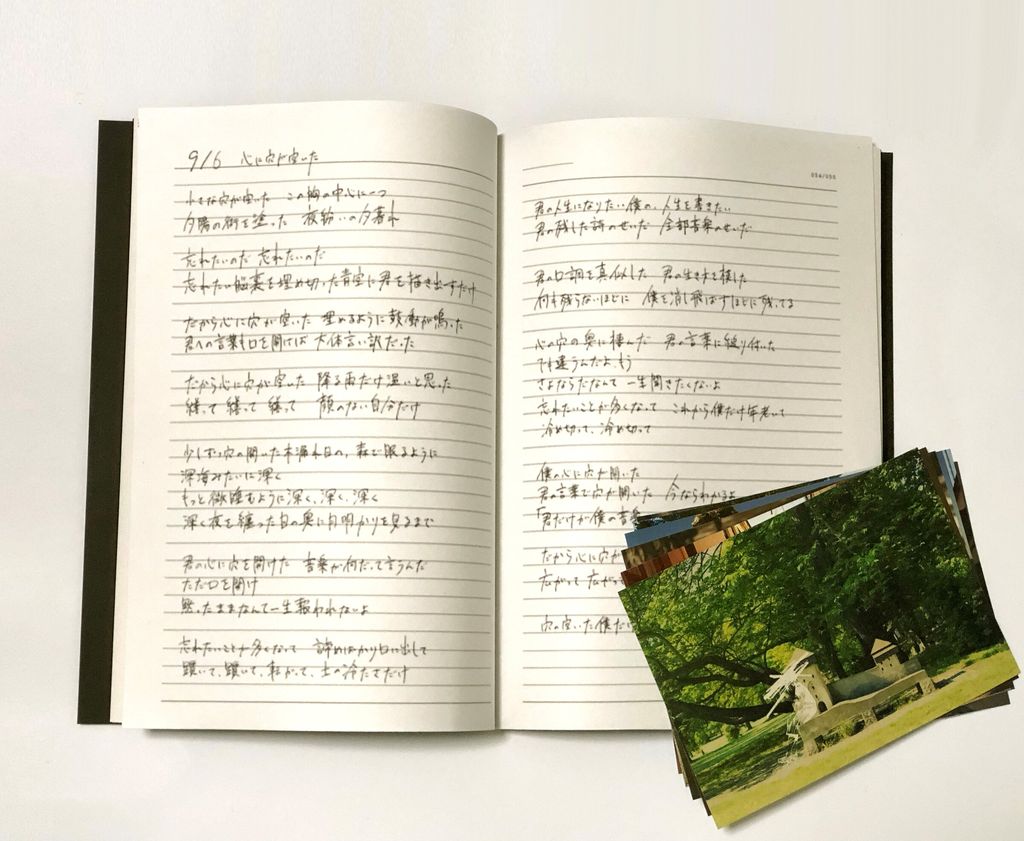 9/6 心に穴が空いた
小さな穴が空いた この胸の中心に一つ
夕陽の街を塗った 夜紛いの夕暮れ
忘れたいのだ 忘れたいのだ
忘れたい脳裏を埋め切った青空に君を描き出すだけ
だから心に穴が空いた 埋めるように鼓動が鳴った
君への言葉も口を開けば 大体言い訳だった
だから心に穴が空いた 降る雨だけ温いと思った
纏って 纏って 纏って 顔のない自分だけ
少しずつ穴の開いた木漏れ日の、森で眠るように
深海みたいに深く
もっと微睡むように深く、深く、深く
深く夜を纏った目の奥に月明かりを見るまで
君の心に穴を開けた 音楽が何だって言うんだ
ただ口を開け
黙ったままなんて一生報われないよ
忘れたいことが多くなって 諦めばかり口に出して
躓いて、躓いて、転がって、土の冷たさだけ
君の人生になりたい僕の、人生を書きたい
君の残した詩のせいだ 全部音楽のせいだ
君の口調を真似した 君の生き方を模した
何も残らないほどに 僕を消し飛ばすほどに残ってる
心の穴の奥に棲んだ 君の言葉に縋り付いた
でも違うんだよ、もう
さよならだなんて 一生聞きたくないよ
忘れたいことが多くなって これから僕だけ年老いて
冷め切って、冷め切って
僕の心に穴が開いた
君の言葉で穴が開いた 今ならわかるよ
「君だけが僕の音楽
だから心に穴が
広がって 広がっ
穴の空いた僕だ